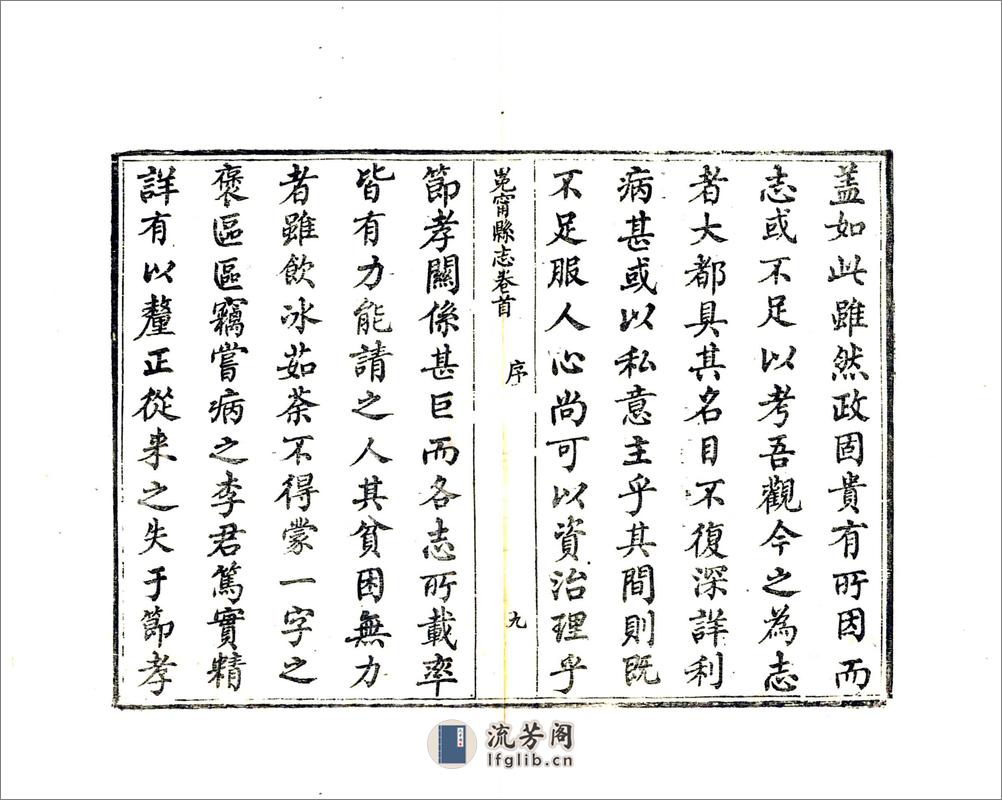 蓋如此雖然政固貴有所因而
志或不足以考吾觀今之為志
者大都具其名目不復深詳利
病甚或以私意主乎其間則既
不足服人心尚可以資治理乎
崽甯縣志卷首
序
九
節孝關係甚巨而各志所載率
皆有力能請之人其貧困無力
者雖飲冰茹荼不得蒙一字之
褒區區竊嘗病之李君篤實精
詳有以釐正從来之失于節孝
流芳阁
lfglib.cn